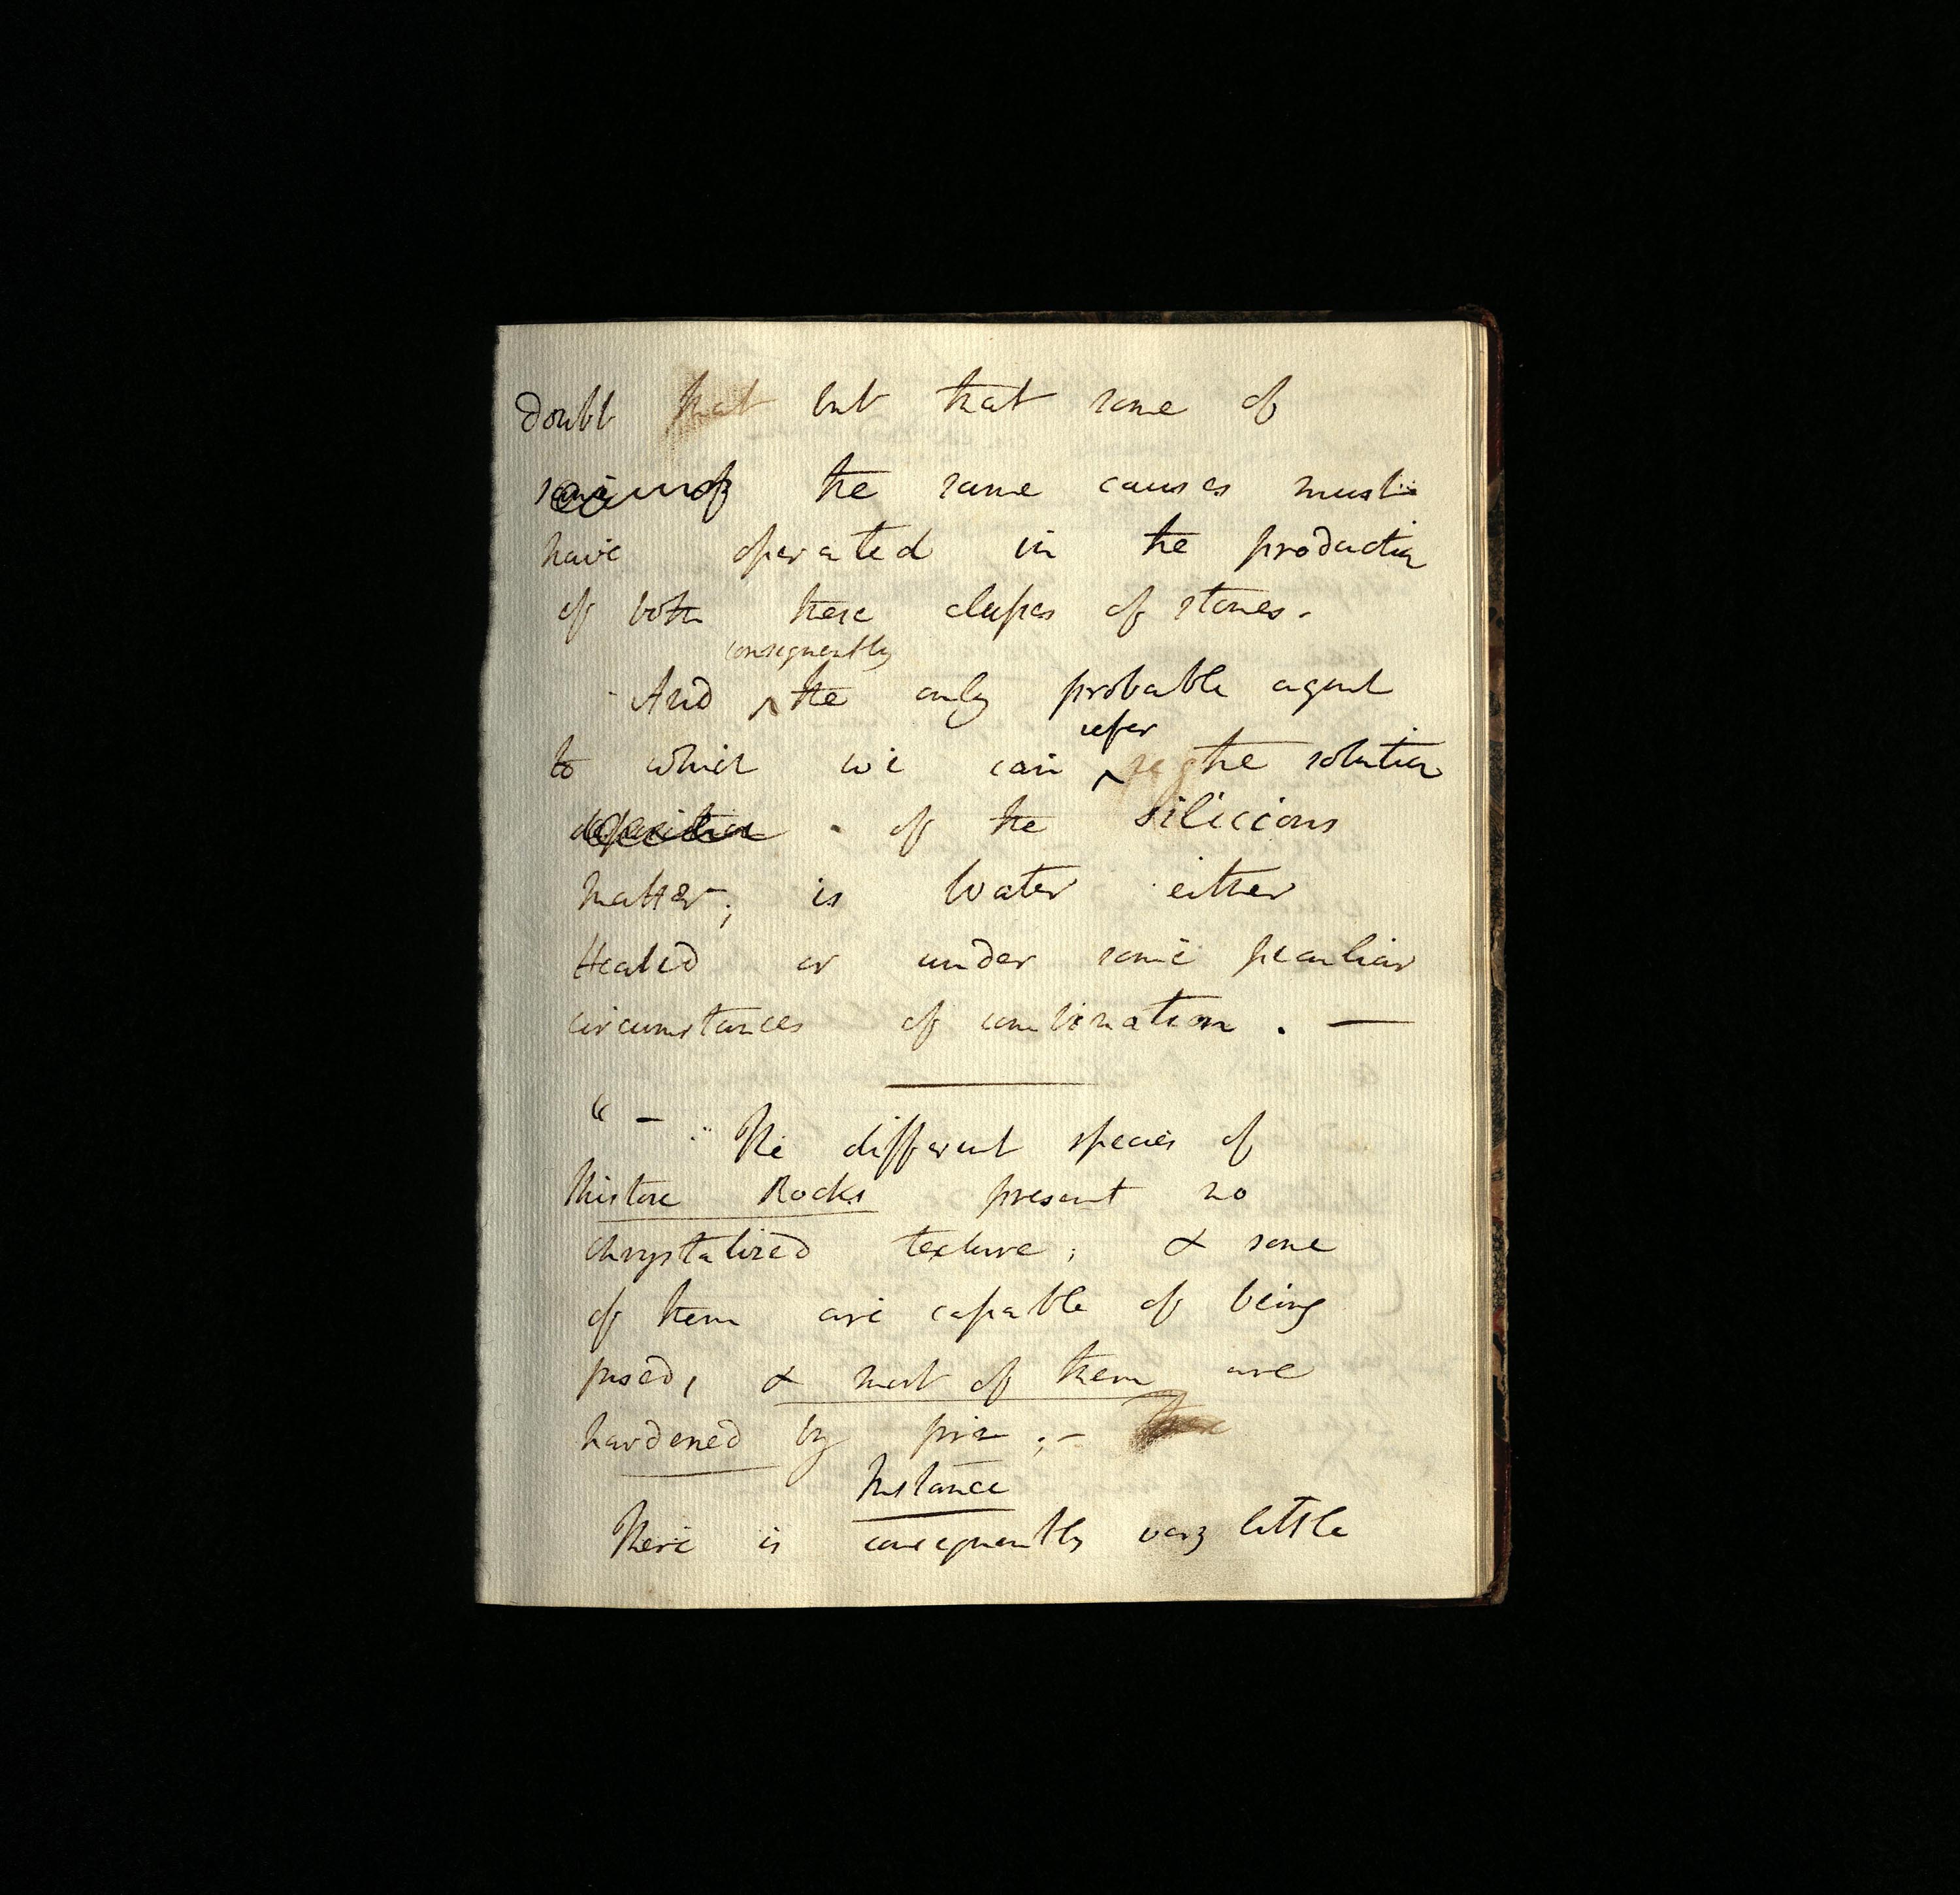 doubt that but that some of
some of the same causes must
have operated in the production
of both these classes of stones.
consequently
- And ^ the only probable agent
refer
to which we can ^ the solution
deposition of the silicious
matter; is Water either
Heated or under some peculiar
circumstances of combination. —
" - The different species of
Shistose Rocks present no
chrystalized texture; & some
of them are capable of being
fused, & most of them are
hardened by fire ;-
Instance
There is consequently very little